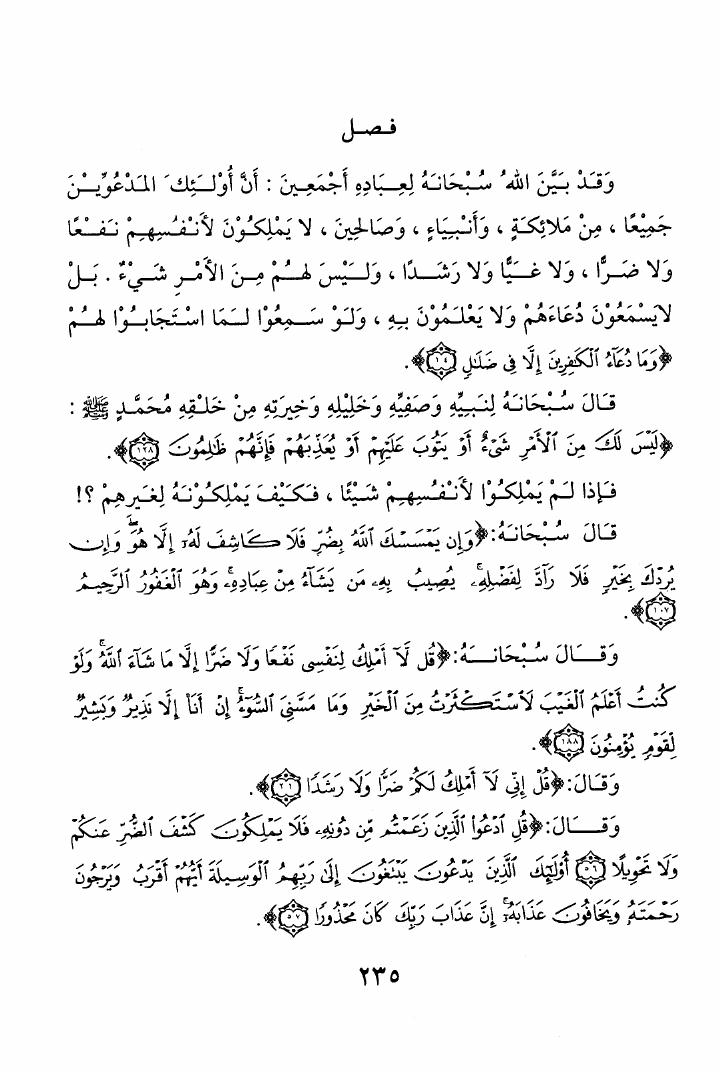 فصل
وَقَدْ بَيَّنَ اللهُ سُبْحَانَهُ لِعِبَادِهِ أَجْمَعِينَ : أَنَّ أُوْلَئِكَ المَدْعُوِّيْنَ
جَمِيْعًا ، مِنْ مَلائِكَةٍ ، وَأَنْبِيَاءٍ ، وَصَالحِينَ ، لا يَمْلِكُوْنَ لأَنْفُسِهِمْ نَفْعًا
وَلا ضَرًّا ، وَلا غَيًّا وَلا رَشَدًا ، وَلَيْسَ لهُمْ مِنَ الأَمْرِ شَيْءٌ . بَلْ
لايَسْمَعُوْنَ دُعَاءَهُمْ وَلا يَعْلَمُوْنَ بِهِ ، وَلَوْ سَمِعُوْا لَمَا اسْتَجَابُوْا لهُمْ
﴿وَمَا دُعَآءُ ٱلْكَٰفِرِينَ إِلَّا فِى ضَلَٰلٍ ١٤﴾.
قَالَ سُبْحَانَهُ لِنَبِيِّهِ وَصَفِيِّهِ وَخَلِيْلِهِ وَخِيرَتِهِ مِنْ خَلْقِهِ مُحَمَّدٍ ﷺ :
﴿لَيْسَ لَكَ مِنَ ٱلْأَمْرِ شَىْءٌ أَوْ يَتُوبَ عَلَيْهِمْ أَوْ يُعَذِّبَهُمْ فَإِنَّهُمْ ظَٰلِمُونَ ١٢٨﴾.
فَإِذا لَمْ يَمْلِكُوْا لأَنْفُسِهِمْ شَيْئًا ، فَكَيْفَ يَمْلِكُوْنَهُ لِغَيرِهِمْ ؟!
قَالَ سُبْحَانَهُ:﴿وَإِن يَمْسَسْكَ ٱللَّهُ بِضُرٍّ فَلَا كَاشِفَ لَهُۥٓ إِلَّا هُوَ ۖ وَإِن
يُرِدْكَ بِخَيْرٍ فَلَا رَآدَّ لِفَضْلِهِۦ ۚ يُصِيبُ بِهِۦ مَن يَشَآءُ مِنْ عِبَادِهِۦ ۚ وَهُوَ ٱلْغَفُورُ ٱلرَّحِيمُ
١٠٧﴾.
وَقَالَ سُبْحَانَهُ:﴿قُل لَّآ أَمْلِكُ لِنَفْسِى نَفْعًا وَلَا ضَرًّا إِلَّا مَا شَآءَ ٱللَّهُ ۚ وَلَوْ
كُنتُ أَعْلَمُ ٱلْغَيْبَ لَٱسْتَكْثَرْتُ مِنَ ٱلْخَيْرِ وَمَا مَسَّنِىَ ٱلسُّوٓءُ ۚ إِنْ أَنَا۠ إِلَّا نَذِيرٌ وَبَشِيرٌ
لِّقَوْمٍ يُؤْمِنُونَ ١٨٨﴾.
وَقَالَ:﴿قُلْ إِنِّى لَآ أَمْلِكُ لَكُمْ ضَرًّا وَلَا رَشَدًا ٢١﴾.
وَقَالَ:﴿قُلِ ٱدْعُوا۟ ٱلَّذِينَ زَعَمْتُم مِّن دُونِهِۦ فَلَا يَمْلِكُونَ كَشْفَ ٱلضُّرِّ عَنكُمْ
وَلَا تَحْوِيلًا ٥٦ أُو۟لَٰٓئِكَ ٱلَّذِينَ يَدْعُونَ يَبْتَغُونَ إِلَىٰ رَبِّهِمُ ٱلْوَسِيلَةَ أَيُّهُمْ أَقْرَبُ وَيَرْجُونَ
رَحْمَتَهُۥ وَيَخَافُونَ عَذَابَهُۥٓ ۚ إِنَّ عَذَابَ رَبِّكَ كَانَ مَحْذُورًا ٥٧﴾.
٢٣٥